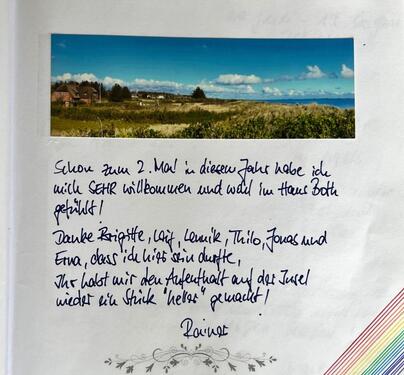 Schon zum 2. Mal in diesem Jahr habe ich
mich SEHR willkommen und wohl im Haus Both
gefühlt!
Danke Brigitte, Leif, Lennik, Thilo, Jonas und
Erva, dass ich hier sein durfte,
Ihr habt mir den Aufenthalt auf der Insel
wieder ein Stück "heller" gemacht!
Rainer